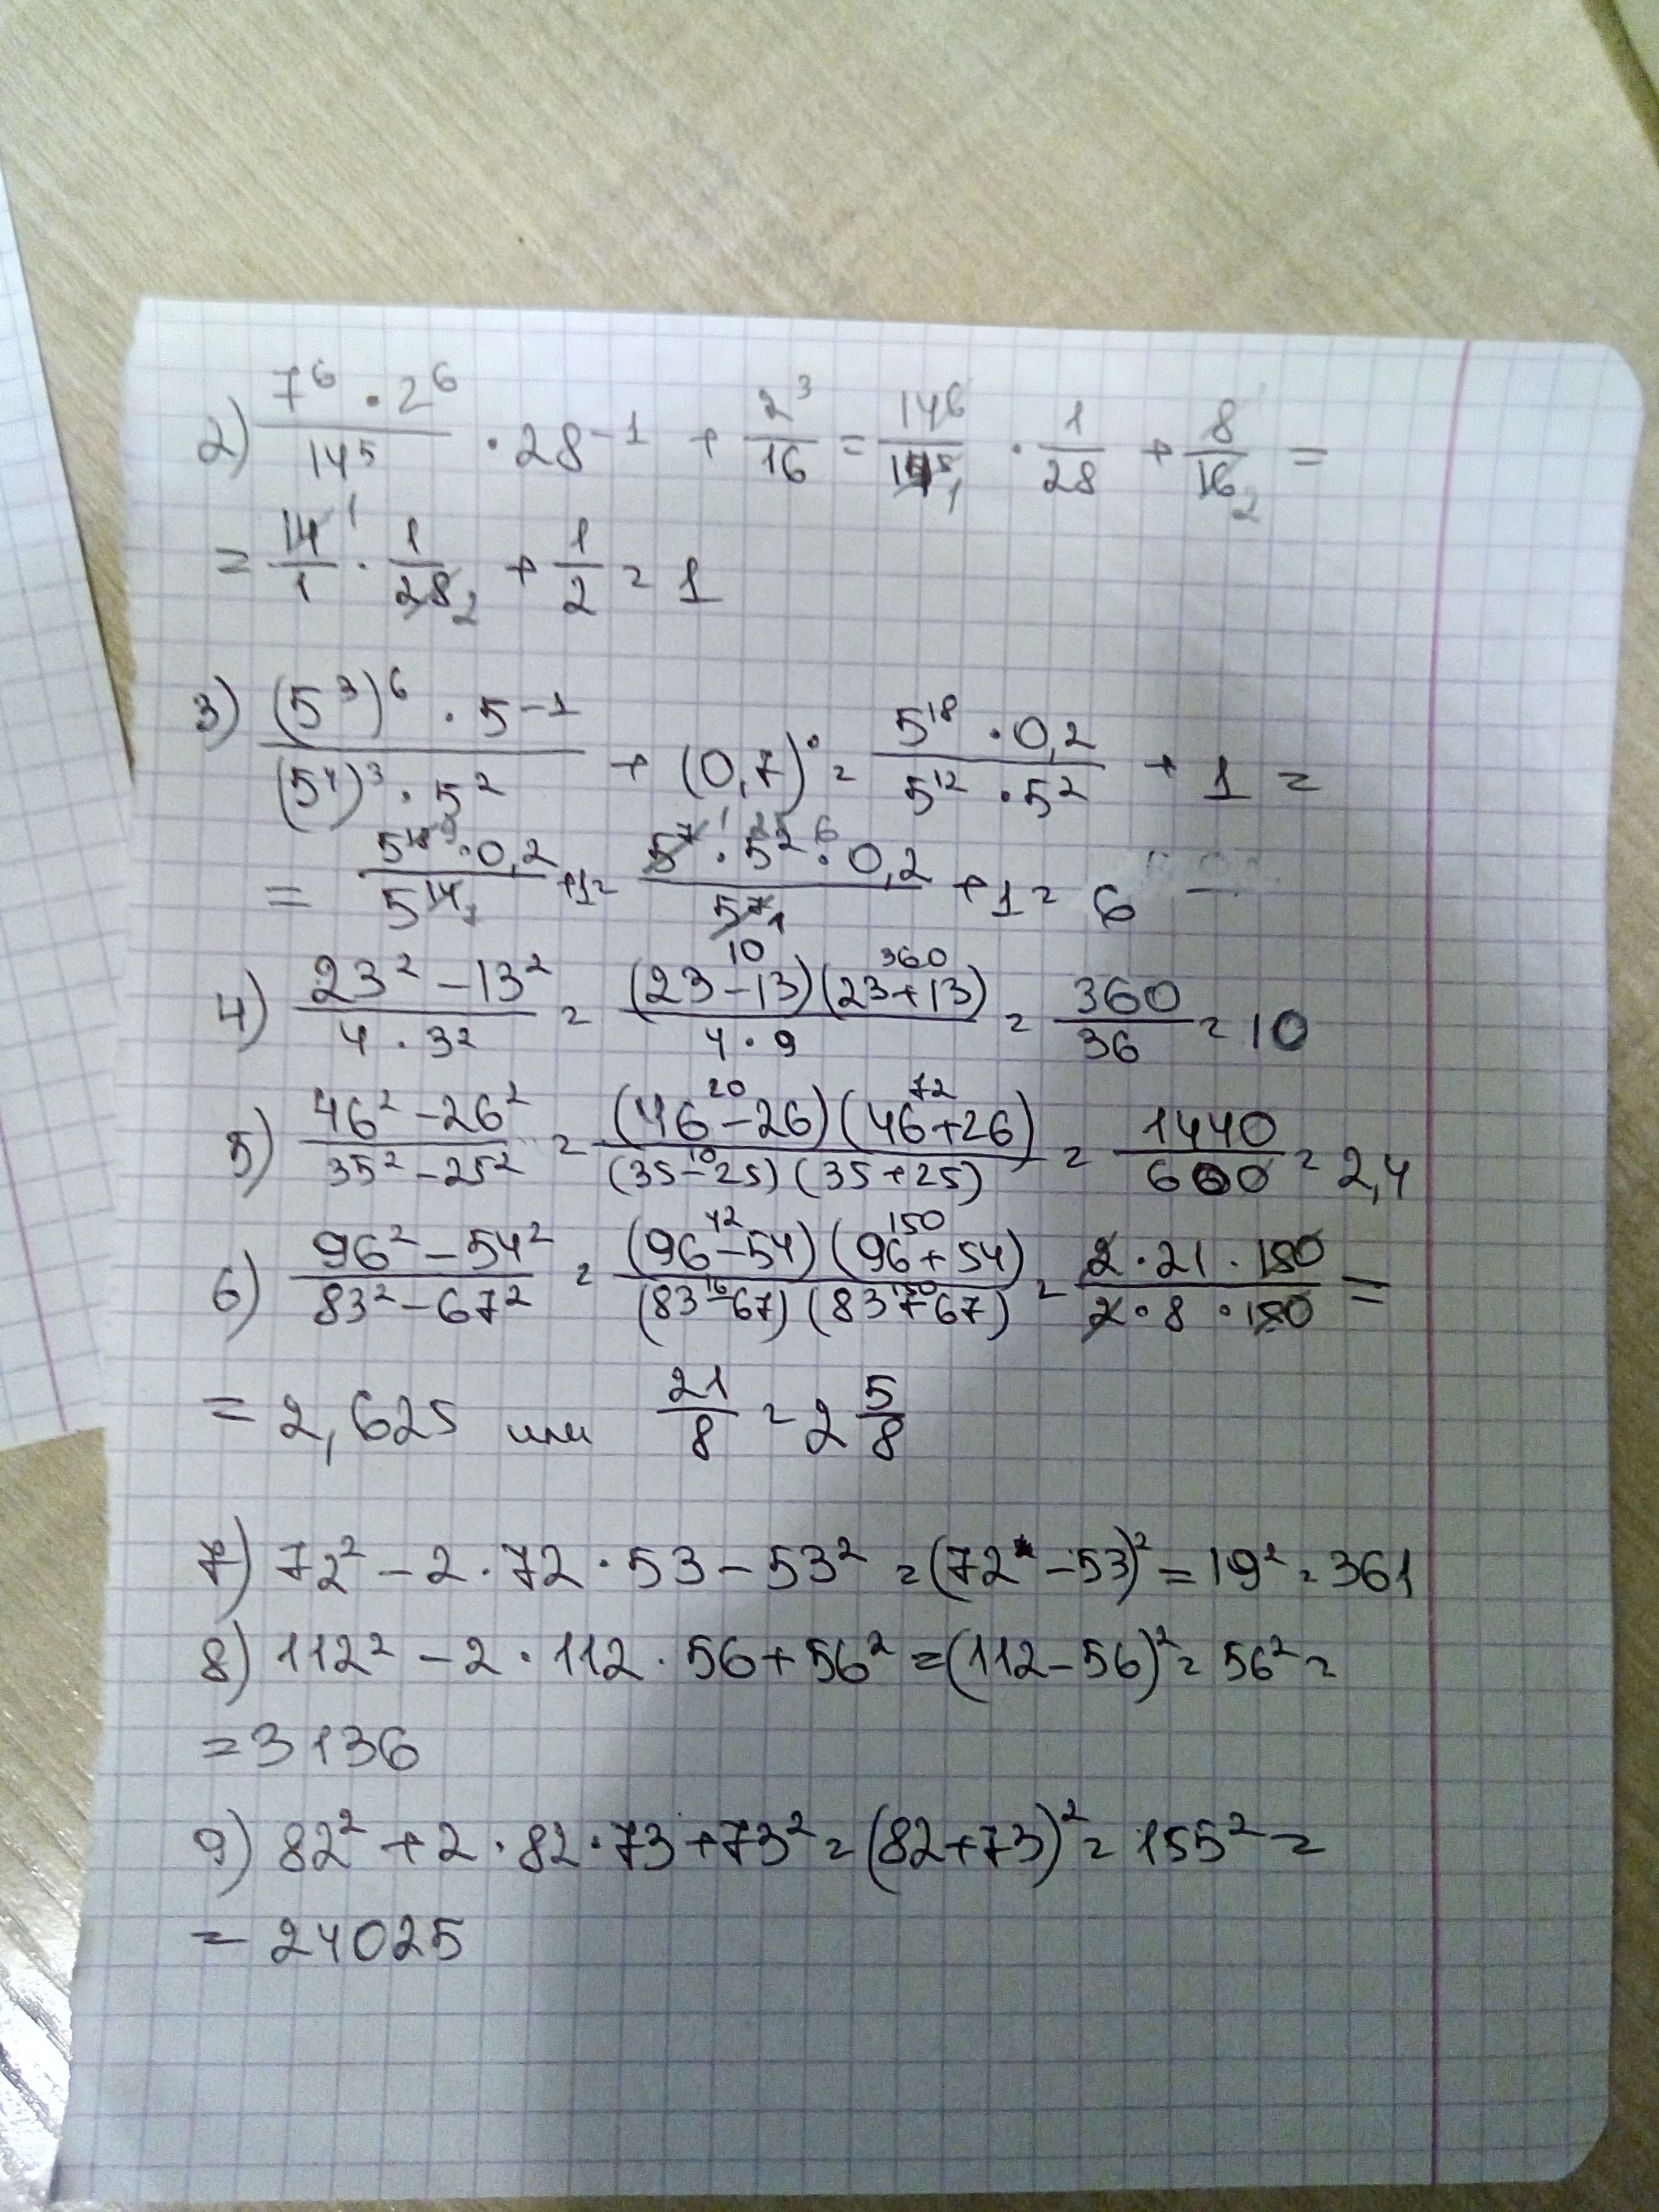 2) 7⁶ · 2⁶ / 14⁵ · 28⁻¹ + 2³/16 = 14⁶/14⁵ 1 · 1/28 + 8/16 2 =
= 14 1/1 · 1/28 2 + 1/2 = 1
3) (5³)⁶ · 5⁻¹ / (5⁴)³ · 5² + (0,7)⁰ = 5¹⁸ · 0,2 / 5¹² · 5² + 1 =
= · 0,2 / 5¹⁴ 1 + 1 = · 0,2 / 5⁷ 1 + 1 = 6
4) 23² − 13² / 4 · 3² = (23 − 13) 10 (23 + 13) 360 / 4 · 9 = 360/36 = 10
5) 46² − 26² / 35² − 25² = (46 − 26) 20 (46 + 26) 72 / (35 − 25) 10 (35 + 25) = 1440/600 = 2,4
6) 96² − 54² / 83² − 67² = (96 − 54) 42 (96 + 54) 150 / (83 − 67) 16 (83 + 67) 150 = 2 · 21 · 150 / 2 · 8 · 150 =
= 2,625 или 21/8 = 2 5/8
7) 72² − 2 · 72 · 53 − 53² = (72 − 53)² = 19² = 361
8) 112² − 2 · 112 · 56 + 56² = (112 − 56)² = 56² =
= 3136
9) 82² + 2 · 82 · 73 + 73² = (82 + 73)² = 155² =
= 24025